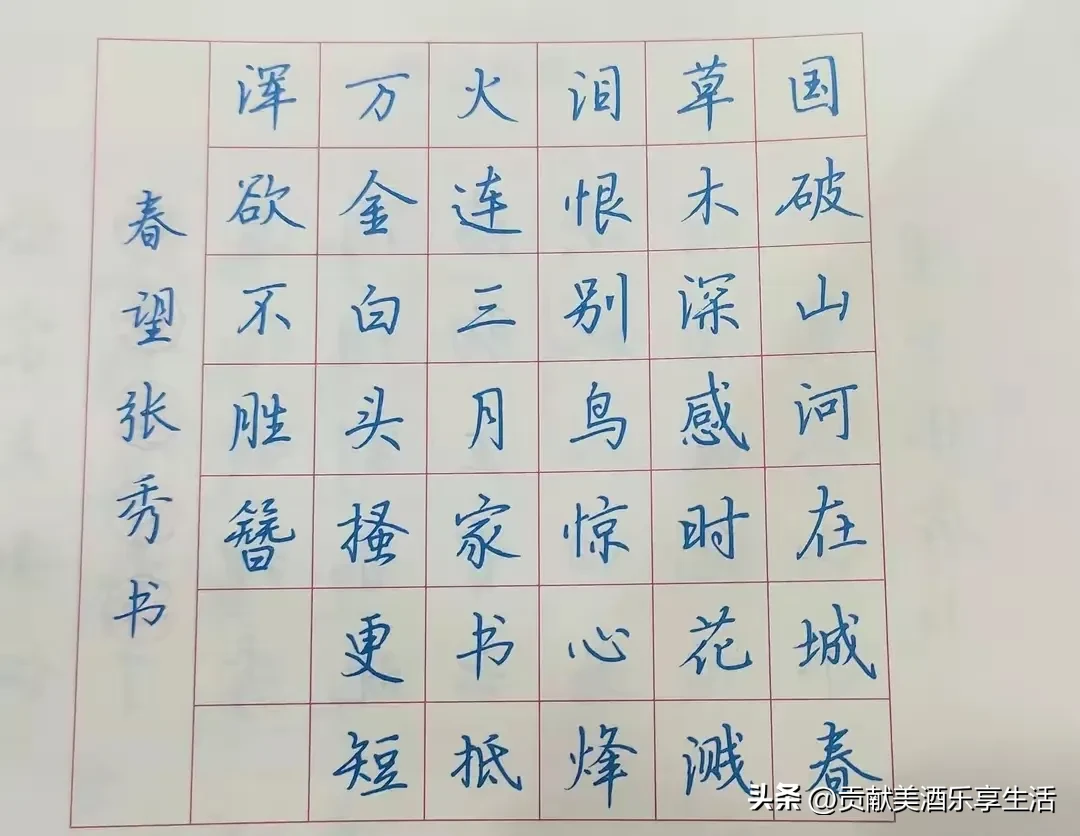 国破山河在城春
草木深感时花溅
泪恨别鸟惊心烽
火连三月家书抵
万金白头搔更短
浑欲不胜簪
春望张秀书
头条 @贡献美酒乐享生活